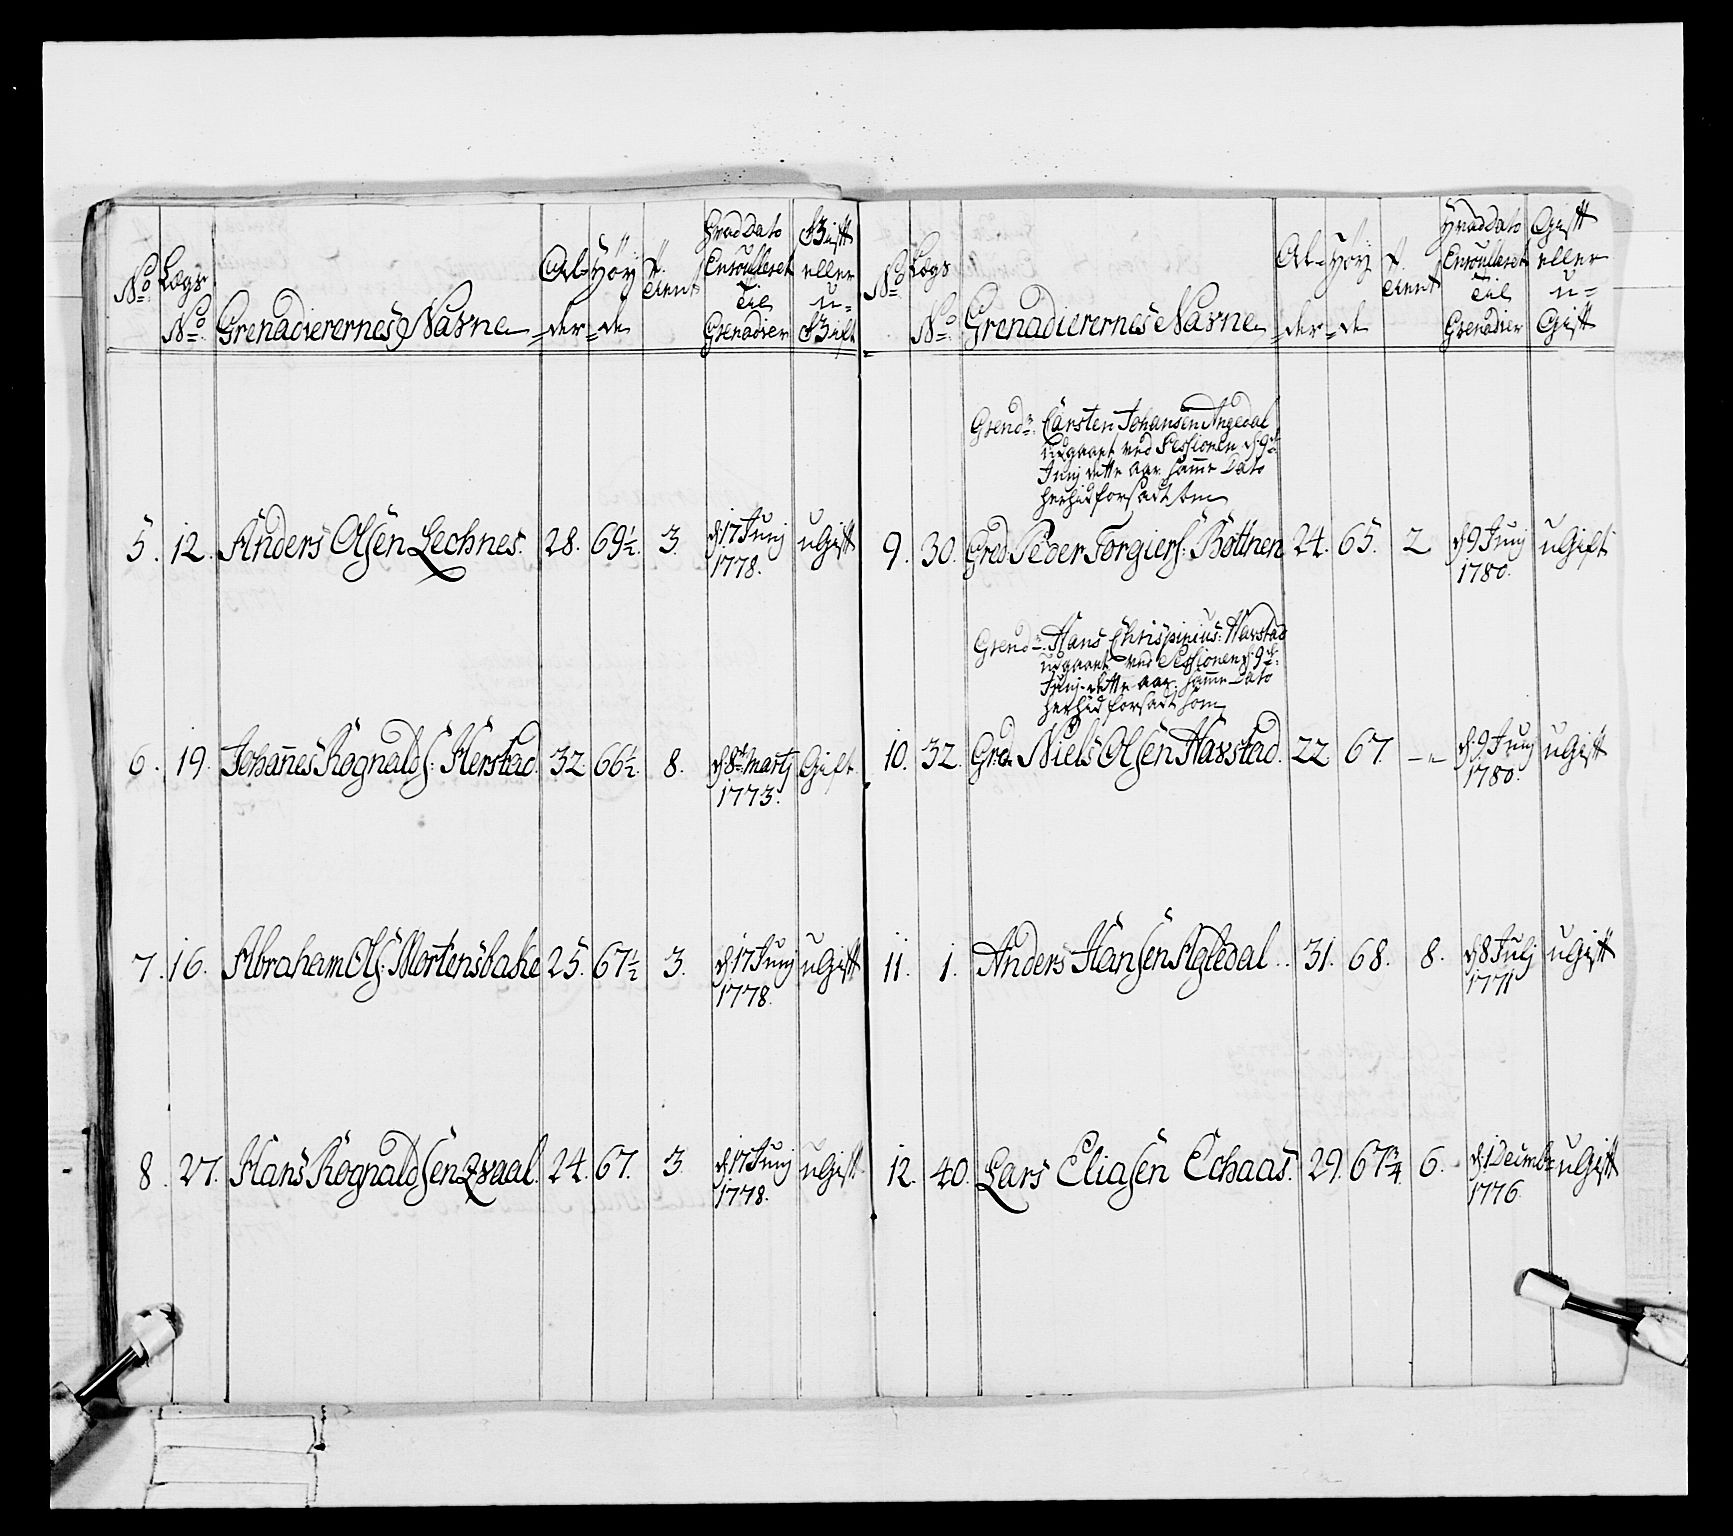 No
Lægs No
Grenadierernes Navne
Al-der
Höy-de
tient
Hvad Dato Enroulleret Til Grenadier
Gift eller u-Gift
5. 12. Anders Olsen Lechnes. 28. 69½. 3. d: 17 Junj 1778. uGift
6. 19. Johañes Rognalds: Herstad. 32 66½. 8. d 8t Martj 1773. Gift
7. 16. Abraham Ols: Mortensbake 25. 67½ 3. d 17 Junj 1778. uGift
8. 27. Hans Rognaldsen Qvaal. 24. 67. 3 d 17 Junj 1778. uGift
No
Lægs No
Grenadierernes Navne
Al-der
Höy-de
tient
Hvad Dato Enroulleret Til Grenadier
Gift eller u-Gift
Grendr: Carsten Johansen Angedal
udgaaet ved Sessionen d: 9de
Junj dette aar. samme Dato
herhid forsadt som
9. 30. Gred Peder Torgiers: Bottnen 24. 65. 2 d 9 Junj 1780. uGift
Grendr: Hans Chrispinius: Havstad
udgaaet ved Sessionen d: 9de
Junj dette aar. samme Dato
herhid forsadt som
10. 32. Gred Niels Olsen Havstad. 22 67. -"- d: 9 Junj 1780. uGift
11. 1. Anders Hansen Agledal. 31. 68. 8. d 8 Julj 1771 uGift
12. 40. Lars Eliasen Echaas. 29. 67¾ 6. d 1 Decimbr 1776. uGift